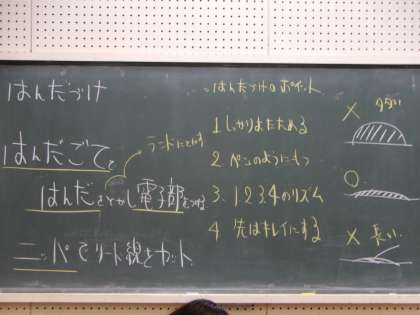 はんだづけ
はんだごてで
はんだをとかし電子部をつける
ランドにとかす
ニッパでリード線をカット
はんだづけのポイント
1 しっかりあたためる
2 ペンのようにもつ
3. 1.2.3.4のリズム
4 先はキレイにする
×
○
× 長い